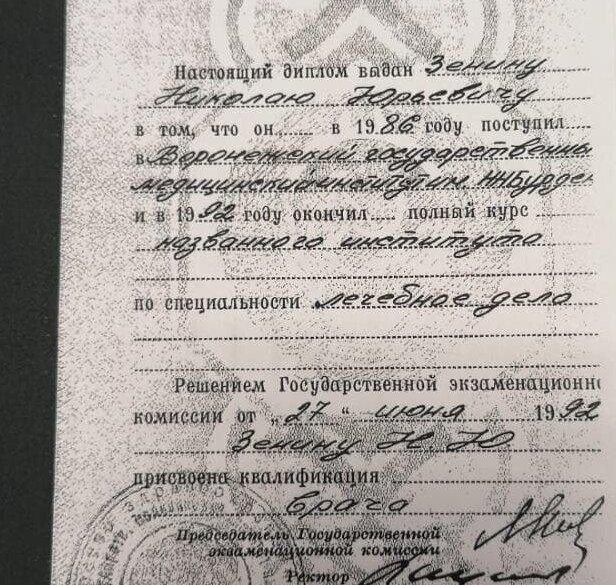 Настоящий диплом выдан Зенину
Николаю Юрьевичу
в том, что он...... в 1986 году поступил
в Воронежский государственны
медицинский институт им. Н.Н.Бурден
и в 1992 году окончил..... полный курс
названного института
по специальности лечебное дело
Решением Государственной экзаменационно
комиссии от „27“ июня 1992
Зенину Н. Ю
присвоена квалификация
врача
Председатель Государственной
экзаменационной комиссии
Ректор